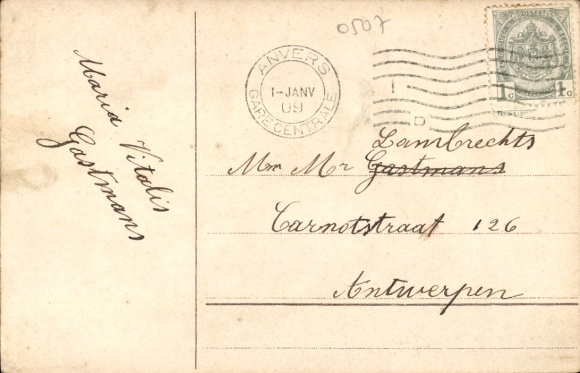 0507
ANVERS
1-JANV
09
GARE CENTRALE
1c 1c
Maria Vitalis
Gastmans
Lambrechts
Mm Mr Gastmans
Carnotstraat 126
Antwerpen